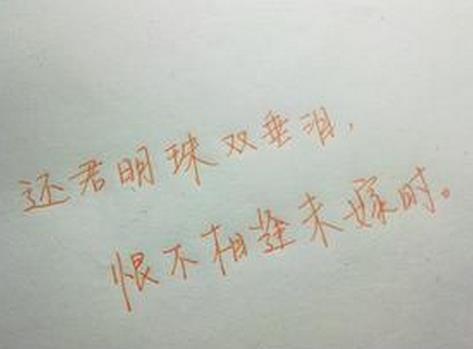 还君明珠双垂泪，
恨不相逢未嫁时。